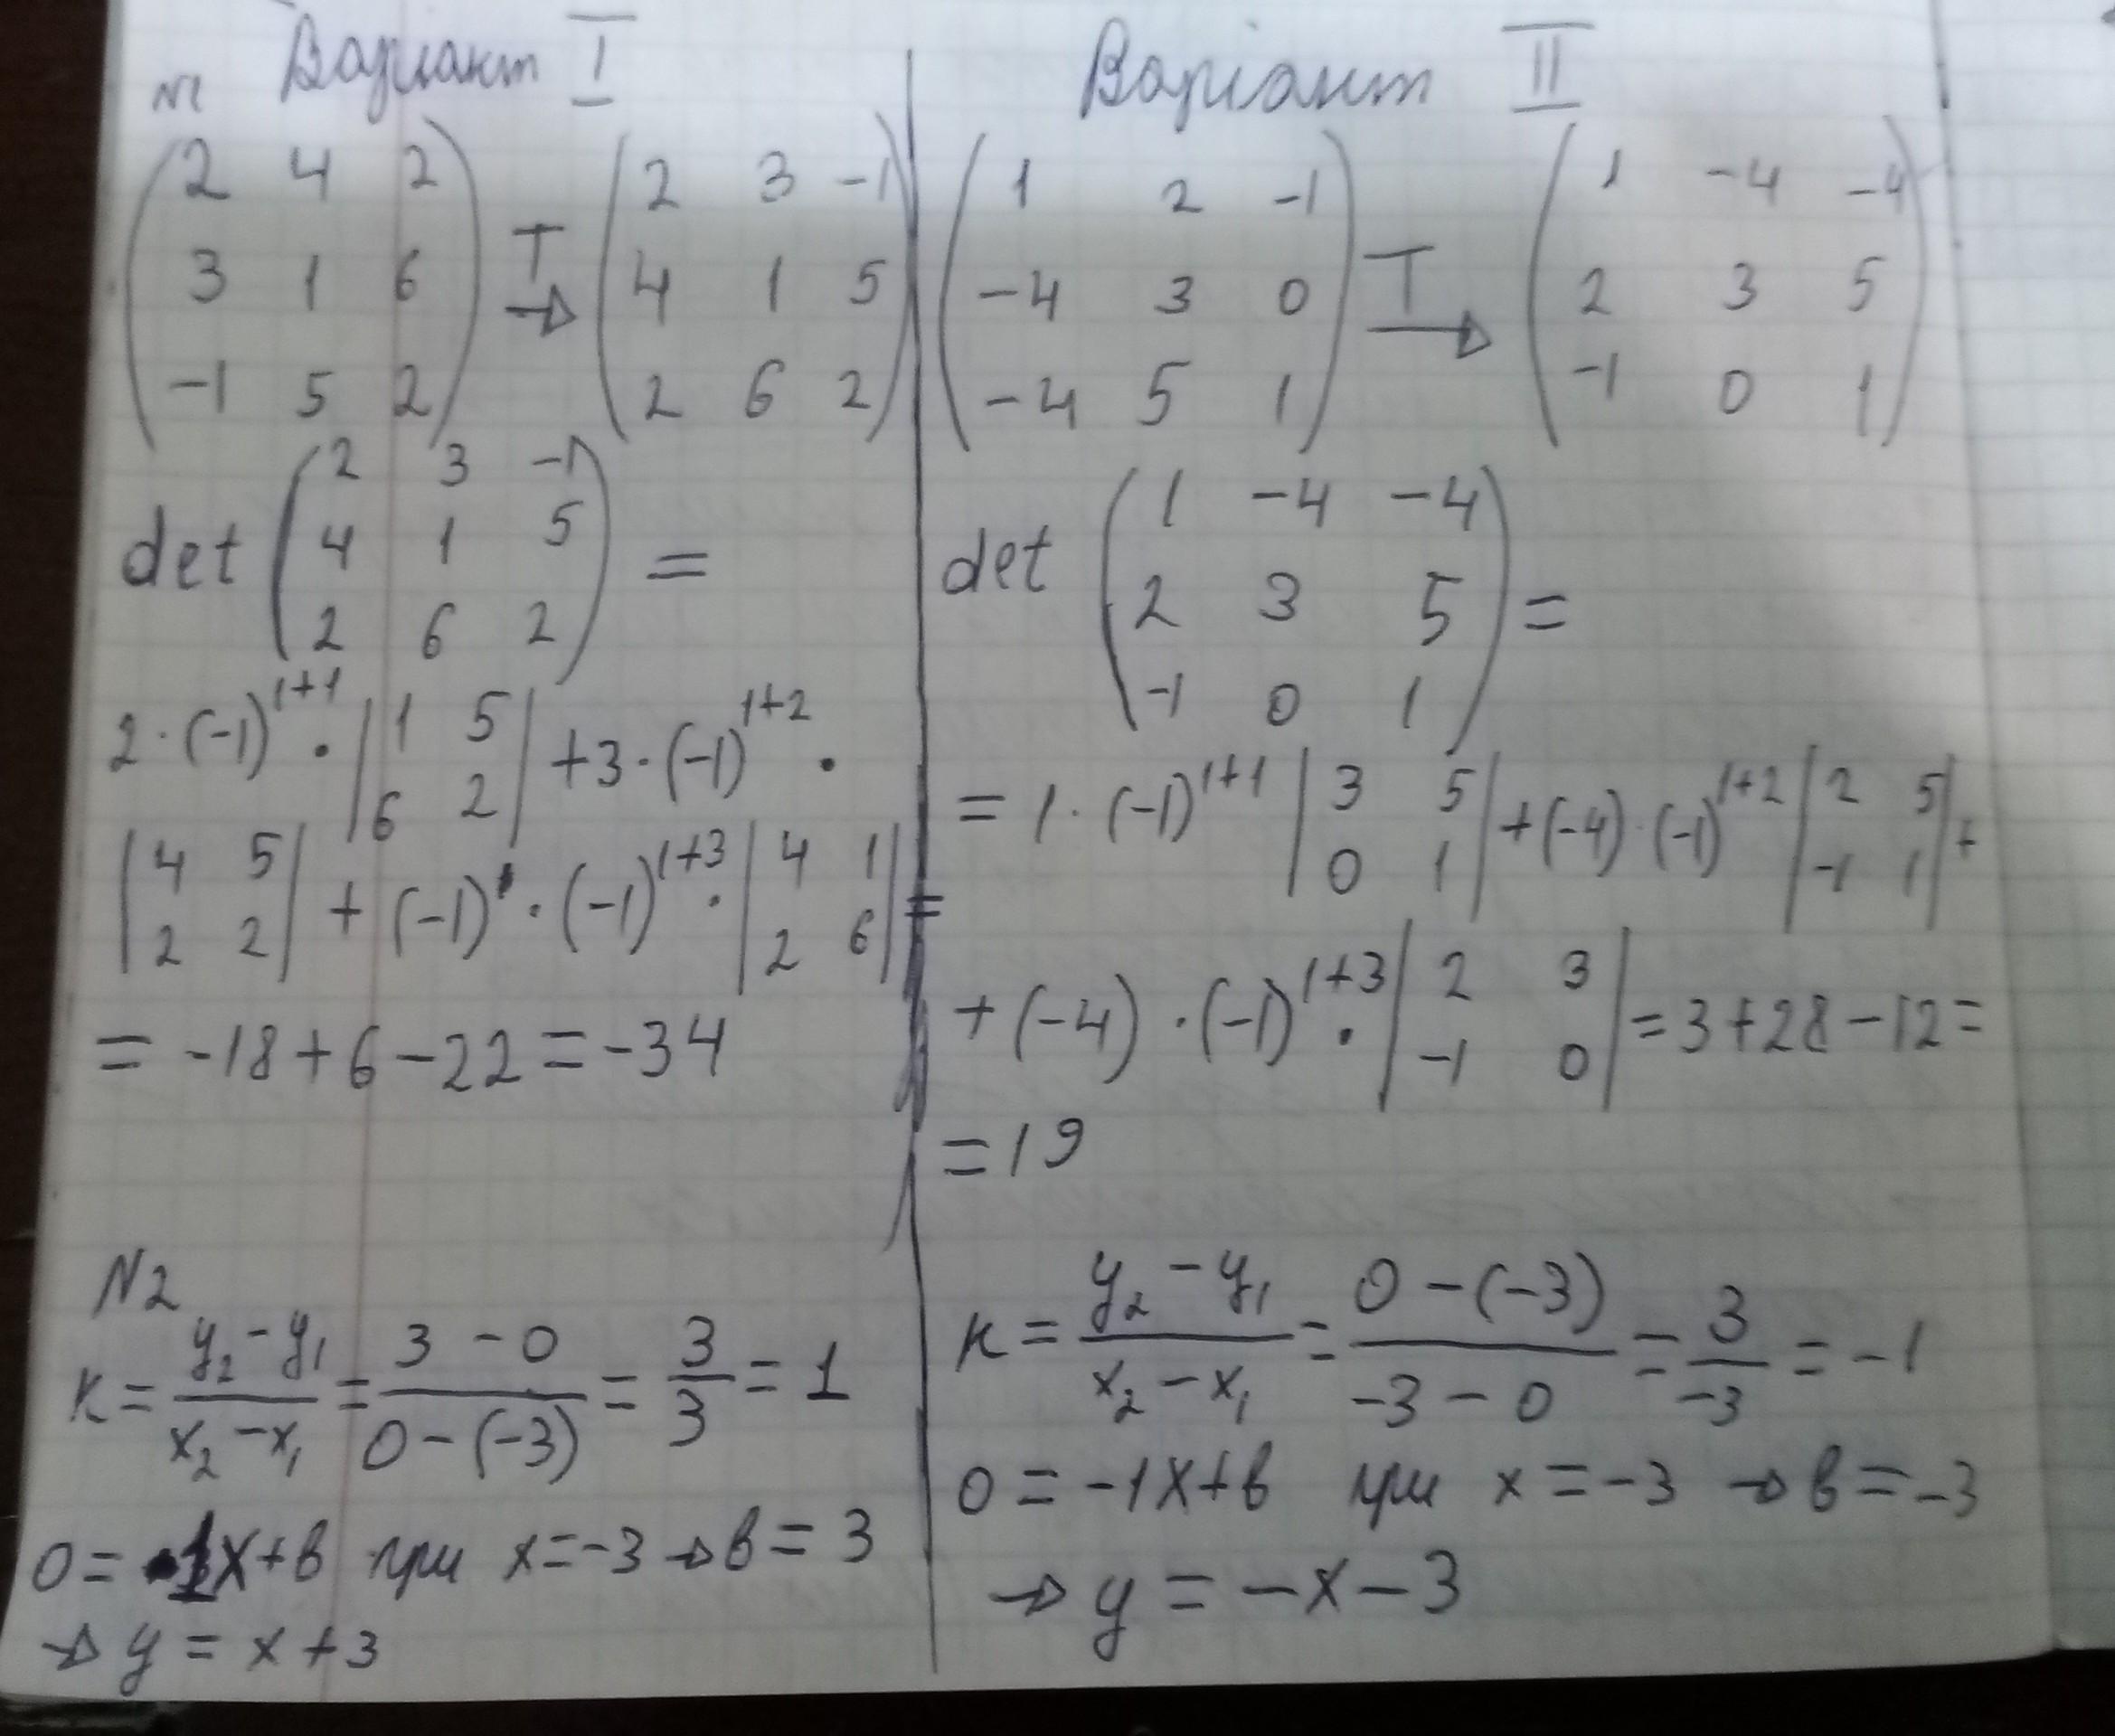 Вариант I
№1
2 4 2
3 1 6
-1 5 2
T →
2 3 -1
4 1 5
2 6 2
det
2 3 -1
4 1 5
2 6 2
=
2·(-1)^{1+1}·|1 5; 6 2|+3·(-1)^{1+2}·
|4 5; 2 2|+(-1)·(-1)^{1+3}·|4 1; 2 6|=
= -18+6-22=-34
N2
к=\frac{y_2-y_1}{x_2-x_1}=\frac{3-0}{0-(-3)}=\frac{3}{3}=1
0=1x+в при x=-3→в=3
→ y = x+3
Вариант II
1 2 -1
-4 3 0
-4 5 1
T →
1 -4 -4
2 3 5
-1 0 1
det
1 -4 -4
2 3 5
-1 0 1
=
=1·(-1)^{1+1}|3 5; 0 1|+(-4)·(-1)^{1+2}|2 5; -1 1|+
+(-4)·(-1)^{1+3}·|2 3; -1 0|=3+28-12=
=19
к=\frac{y_2-y_1}{x_2-x_1}=\frac{0-(-3)}{-3-0}=\frac{3}{-3}=-1
0=-1x+в при x=-3 →в=-3
→ y=-x-3